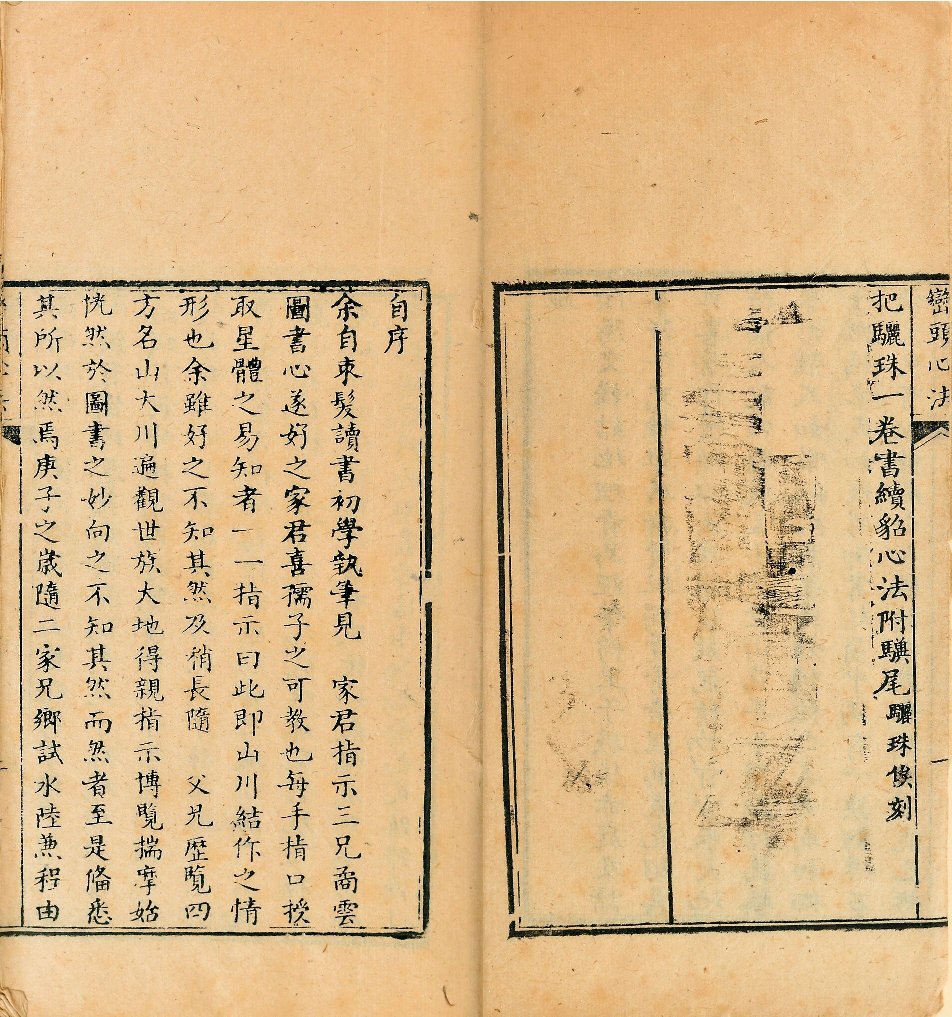 巒頭心法
一
把驪珠一卷書續貂心法附驥尾驪珠俟刻
自序
余自束髮讀書初學執筆見 家君指示三兄矞雲
圖書心遂好之家君喜孺子之可教也每手指口授
取星體之易知者一一指示曰此即山川結作之情
形也余雖好之不知其然及稍長隨 父兄歷覽四
方名山大川遍觀世族大地得親指示博覽揣摩始
恍然於圖書之妙向之不知其然而然者至是備悉
其所以然焉庚子之歲隨二家兄鄉試水陸兼程由